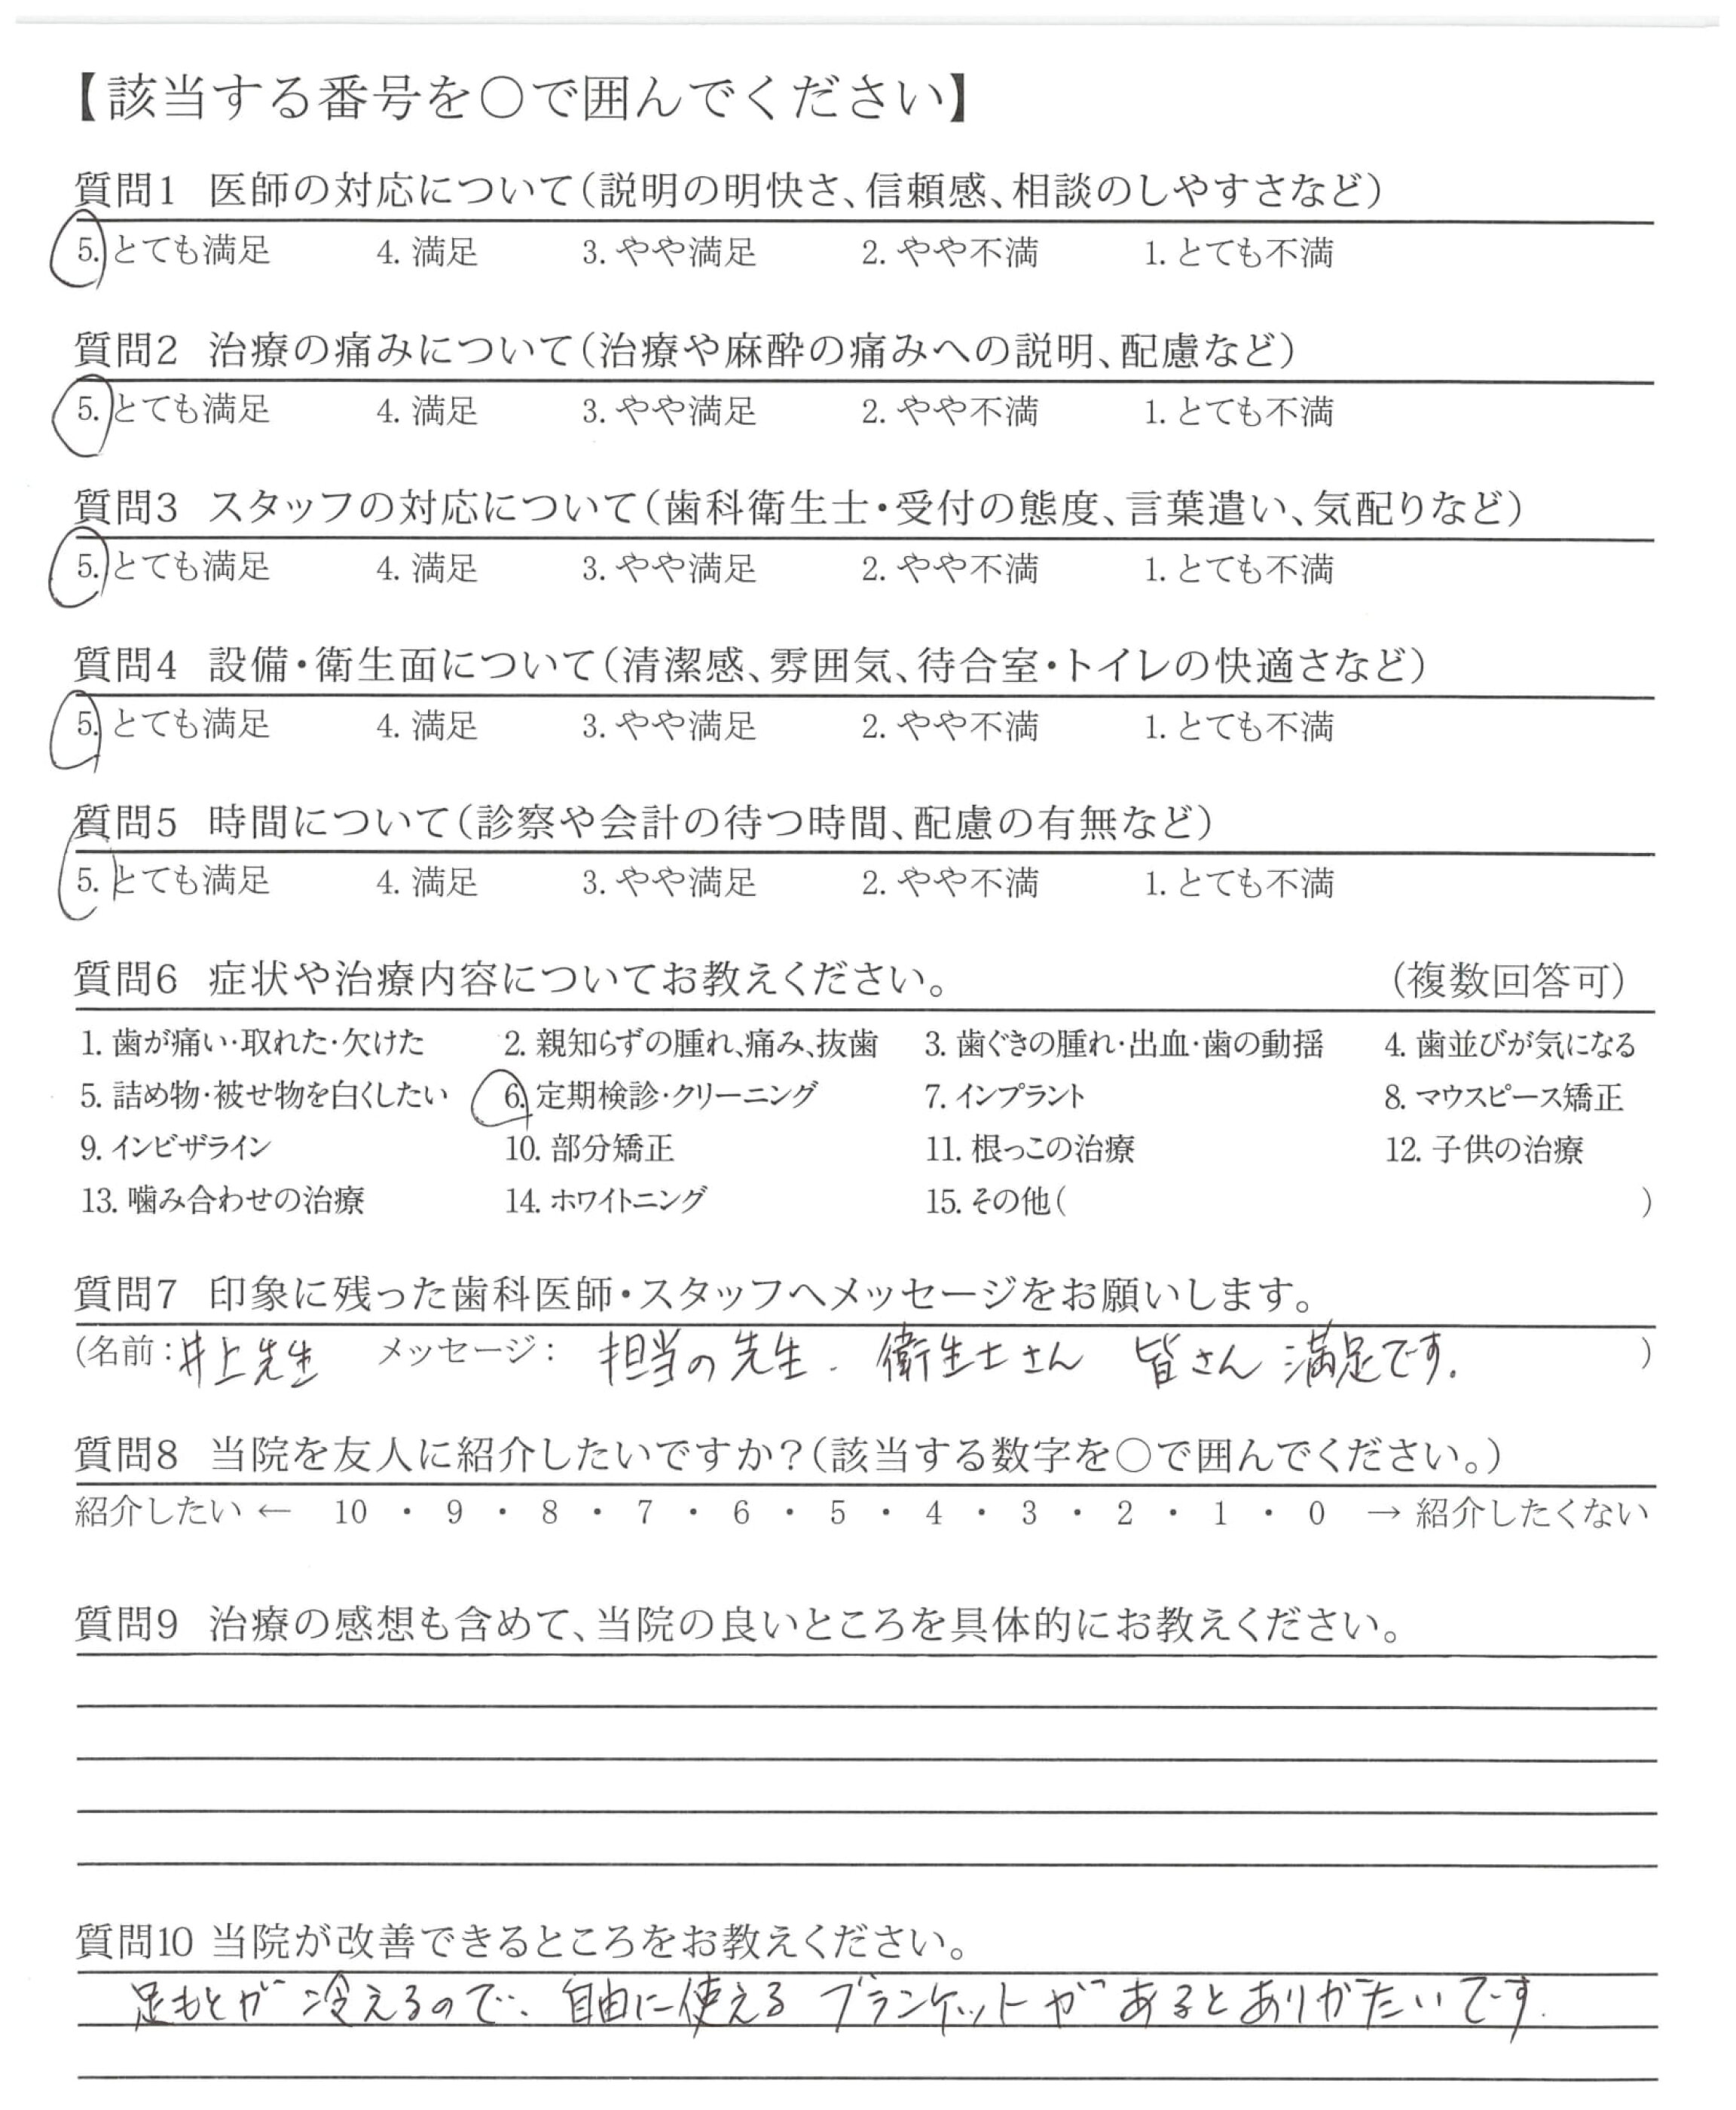 【該当する番号を○で囲んでください】
質問1 医師の対応について(説明の明快さ、信頼感、相談のしやすさなど)
5. とても満足 4. 満足 3. やや満足 2. やや不満 1. とても不満
質問2 治療の痛みについて(治療や麻酔の痛みへの説明、配慮など)
5. とても満足 4. 満足 3. やや満足 2. やや不満 1. とても不満
質問3 スタッフの対応について(歯科衛生士・受付の態度、言葉遣い、気配りなど)
5. とても満足 4. 満足 3. やや満足 2. やや不満 1. とても不満
質問4 設備・衛生面について(清潔感、雰囲気、待合室・トイレの快適さなど)
5. とても満足 4. 満足 3. やや満足 2. やや不満 1. とても不満
質問5 時間について(診察や会計の待つ時間、配慮の有無など)
5. とても満足 4. 満足 3. やや満足 2. やや不満 1. とても不満
質問6 症状や治療内容についてお教えください。 (複数回答可)
1. 歯が痛い・取れた・欠けた 2. 親知らずの腫れ、痛み、抜歯 3. 歯ぐきの腫れ・出血・歯の動揺 4. 歯並びが気になる
5. 詰め物・被せ物を白くしたい 6. 定期検診・クリーニング 7. インプラント 8. マウスピース矯正
9. インビザライン 10. 部分矯正 11. 根っこの治療 12. 子供の治療
13. 噛み合わせの治療 14. ホワイトニング 15. その他( )
質問7 印象に残った歯科医師・スタッフへメッセージをお願いします。
(名前:井上先生 メッセージ: 担当の先生. 衛生士さん 皆さん 満足です. )
質問8 当院を友人に紹介したいですか?(該当する数字を○で囲んでください。)
紹介したい ← 10 ・ 9 ・ 8 ・ 7 ・ 6 ・ 5 ・ 4 ・ 3 ・ 2 ・ 1 ・ 0 → 紹介したくない
質問9 治療の感想も含めて、当院の良いところを具体的にお教えください。
質問10 当院が改善できるところをお教えください。
足もとが冷えるので、自由に使える ブランケットが あるとありがたいです.